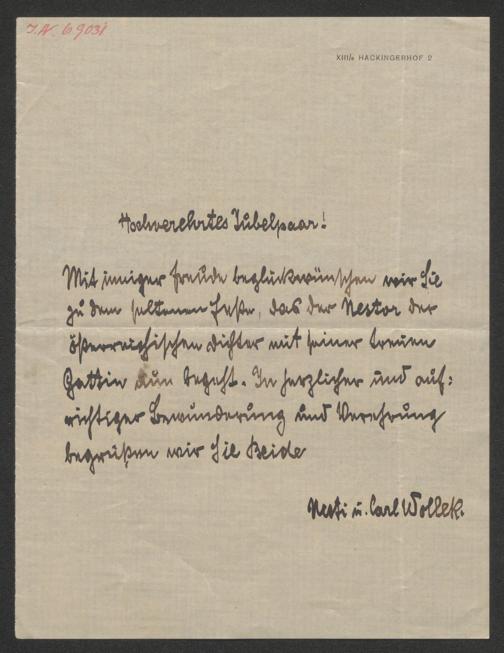 I.N. 69031
XIII/₈ HACKINGERHOF 2
Hochverehrtes Jubelpaar!
Mit inniger Freude beglückwünschen wir Sie
zu dem seltenen Feste, das der Nestor der
österreichischen Dichter mit seiner treuen
Gattin nun begeht. In herzlicher und auf-
richtiger Bewunderung und Verehrung
begrüßen wir Sie Beide
u. Carl Wollek.